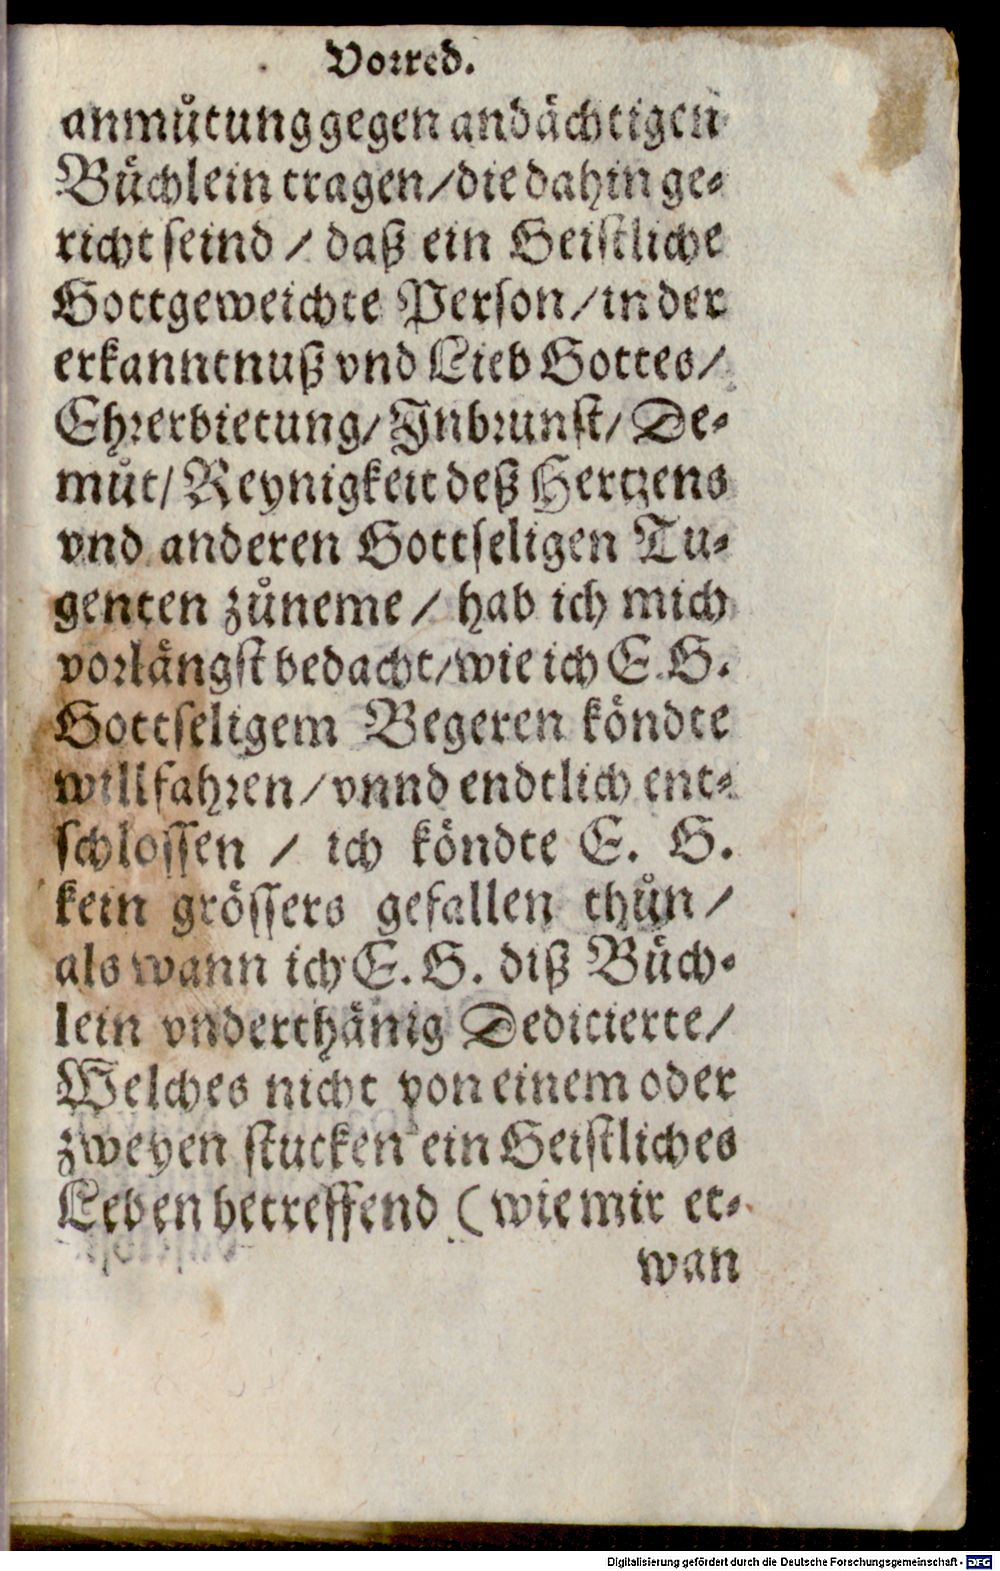 Vorred.
anmuͤtung gegen andaͤchtigen
Buͤchlein tragen/die dahin ge-
richt seind / daß ein Geistliche
Gottgeweichte Person/in der
erkanntnuß vnd Lieb Gottes/
Ehrerbietung/Inbrunst/De-
muͦt/Reynigkeit deß Hertzens
vnd anderen Gottseligen Tu-
genten zuͦneme / hab ich mich
vorlaͤngst bedacht/wie ich E.G.
Gottseligem Begeren koͤndte
willfahren/vnnd endtlich ent-
schlossen / ich koͤndte E. G.
kein groͤssers gefallen thuͦn/
als wann ich E.G. diß Buͤch-
lein vnderthaͤnig Dedicierte/
Welches nicht von einem oder
zweyen stucken ein Geistliches
Leben betreffend (wie mir et-
wan
Digitalisierung gefördert durch die Deutsche Forschungsgemeinschaft - DFG